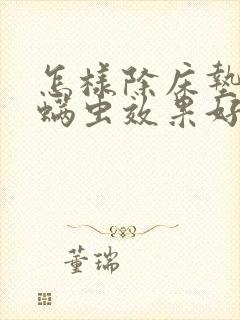 怎樣除床墊
螨虫效果好
董瑞